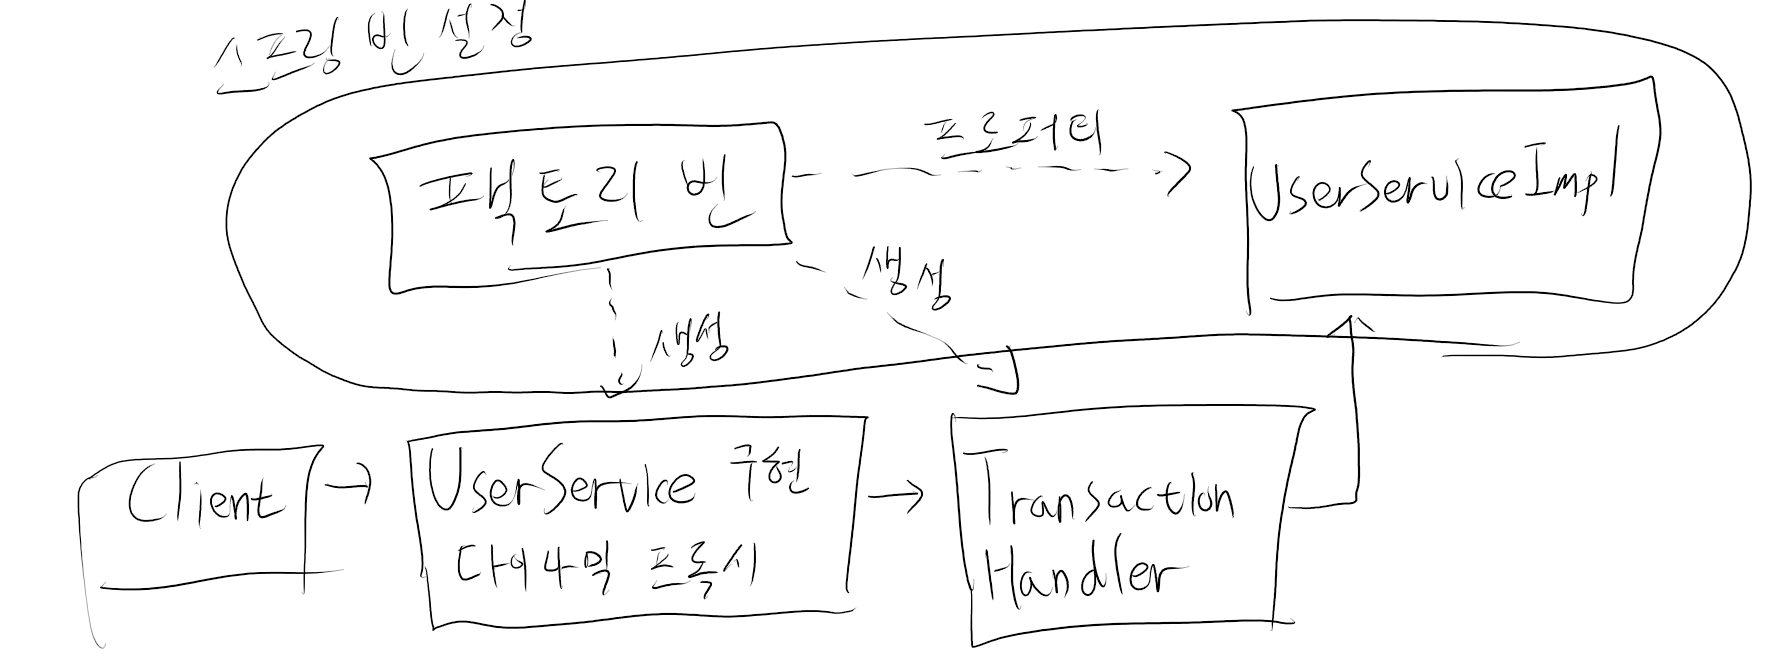 스프링 빈 설정
팩토리 빈
프로퍼티
UserServiceImpl
생성
생성
Client
UserService 구현
다이나믹 프록시
Transaction
Handler